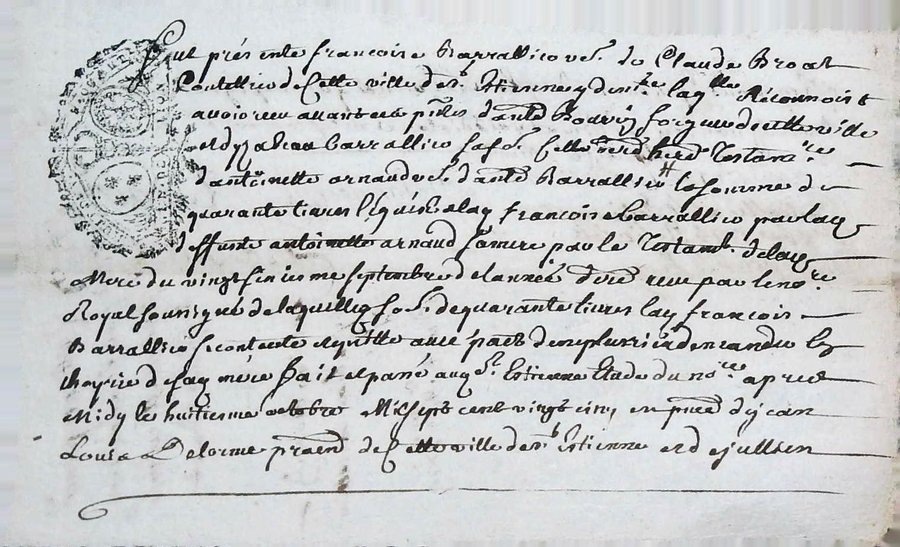 fut présente francoise Barrallier ve. de Claude Broat
Coutellier de Cette ville de st. Estienne y demte. laqlle. Reconnoist
avoir reçu avant ces ptes. d'anthe Bouvier forgeur de cette ville
et d'yzabeau Barrallier sa fe. Cette herit. Testamre.
d'anthoinette arnaud ve. d'anthe Barrallier la somme de
quarante livres léguée a lad. francoise Barrallier par lad.
deffunte antoinette arnaud sa mere par le Testamt. de lad.
Mere du vingt sixiesme septembre de l'année reçu par le nore.
Royal soussigné de laquelle so. de quarante livres lad. francoise
Barrallier se contente et quitte avec pact de n'en plus rien demander
hoyrie de sad. mère fait et passé aud. st. Estienne Etude du nore. apres
Midy le huitiesme octobre Mil sept cent vingt cinq en pnce. de jean
Louis Delorme de Cette ville de st. Estienne et de jullien